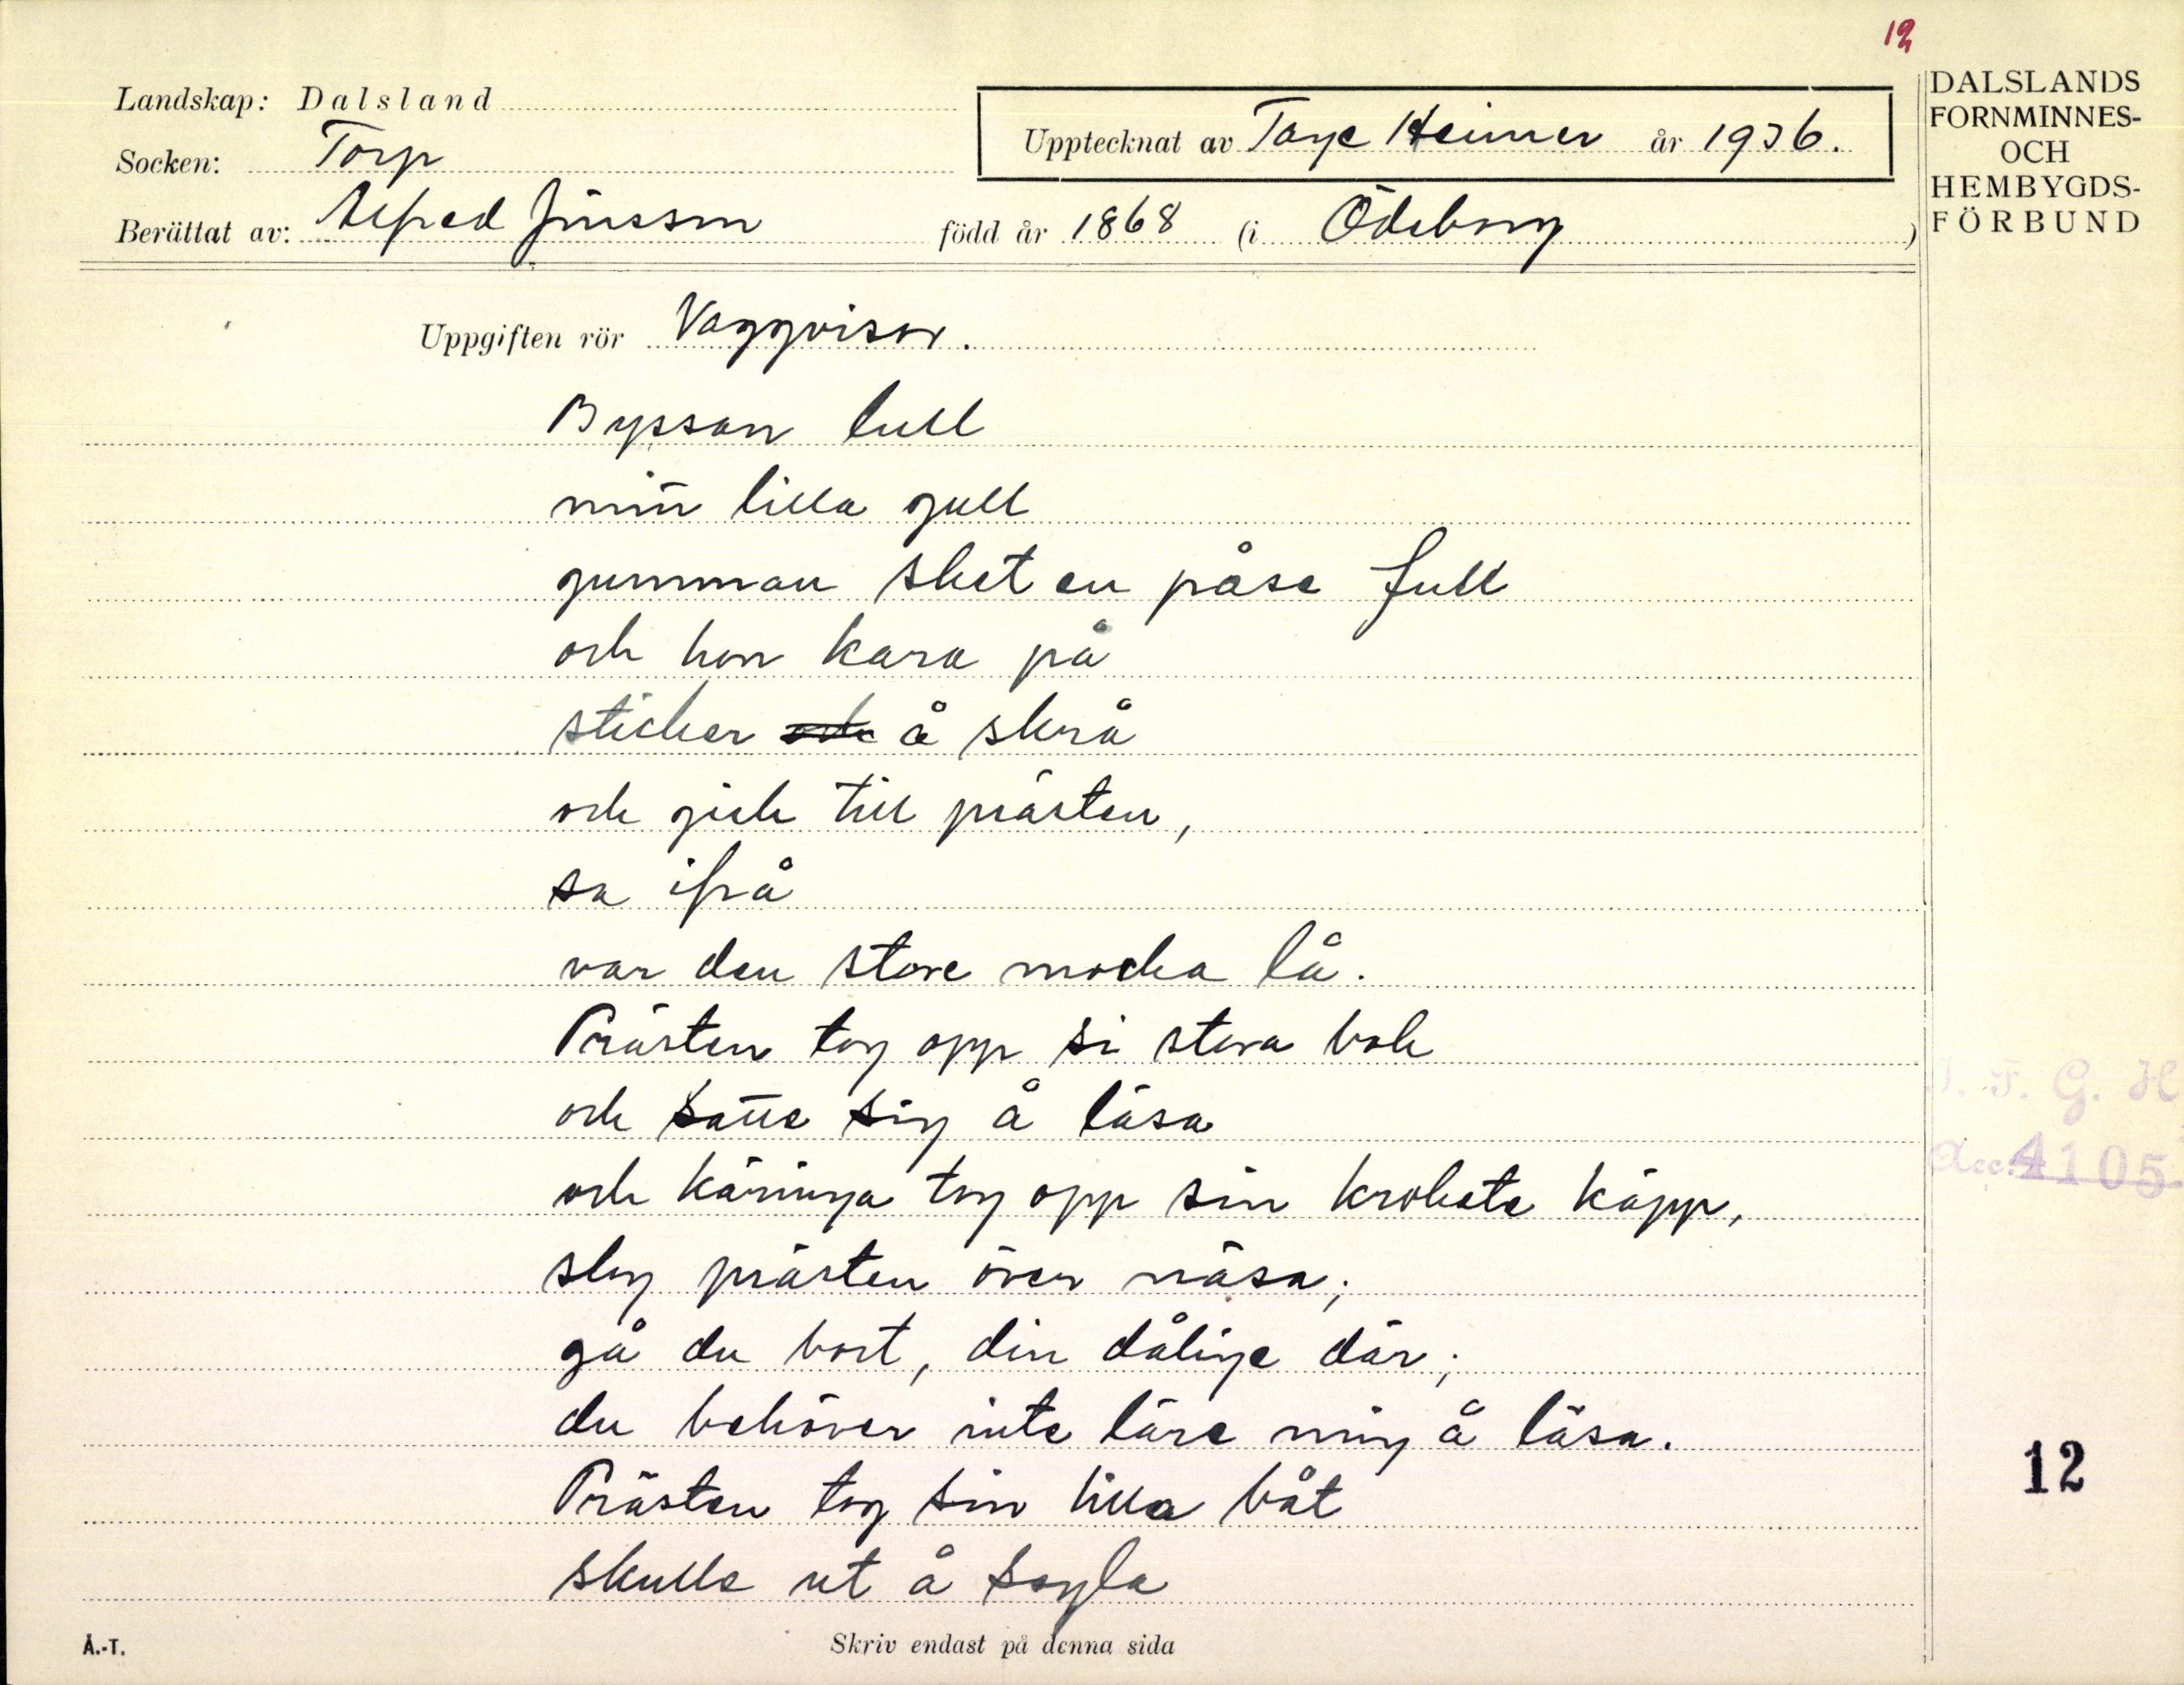 12
Landskap: Dalsland
Upptecknat av Tage Heimer år 1936.
Socken: Torp
Berättat av: Alfred Jonsson född år 1868 (i Ödeborg)
DALSLANDS
FORNMINNES-
OCH
HEMBYGDS-
FÖRBUND
Uppgiften rör Vaggvisor.
Byssan lull
min lilla gull
gumman sket en påse full
och hon kara på
stickor och å skrå
och gick till prästen,
sa ifrå
var den store mocka lå.
Prästen tog opp si stora bok
och satte sig å läsa
och käringa tog opp sin krokete käpp,
slog prästen över näsa;
gå du bort, din dålige där;
du behöver inte lära mig å läsa.
Prästen tog sin lilla båt
skulle ut å segla
I. F. G. H
Acc. 4105
12
Å.-T.
Skriv endast på denna sida